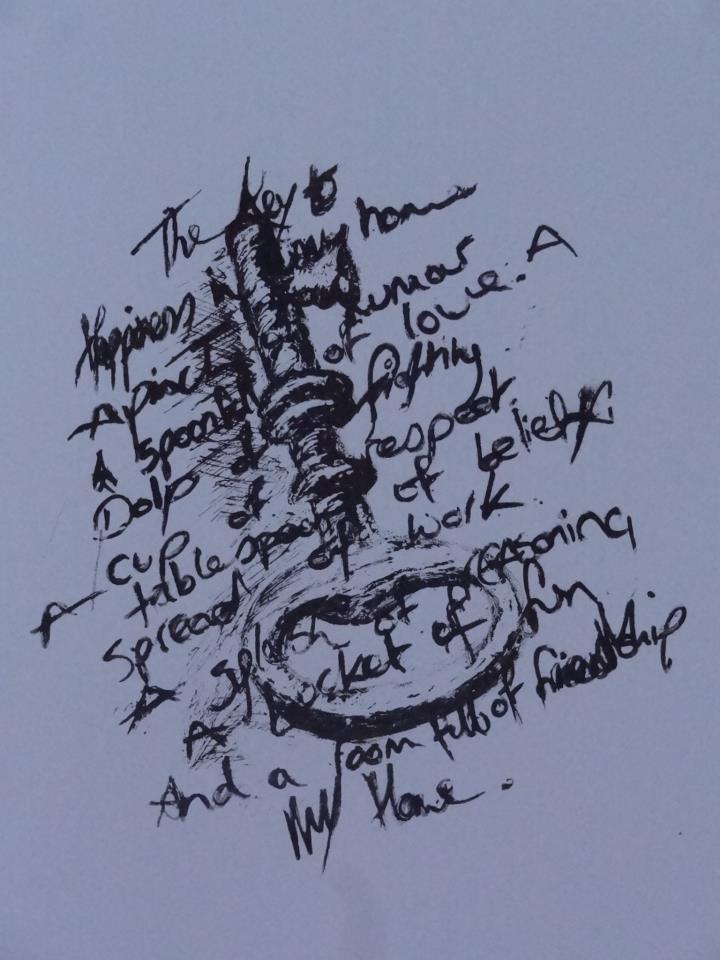 The Key to
Happiness in my home
A pinch of humour. A
A spoonful of love. A
Dolp of fighting
A cup of respect
table spoon of belief
Spread of work.
A splash of reasoning
A bucket of fun
And a room full of friendship
My Home.